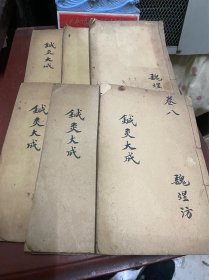 鍼灸大成
魏
卷八
鍼灸大成
鍼灸大成
鍼灸大成
魏